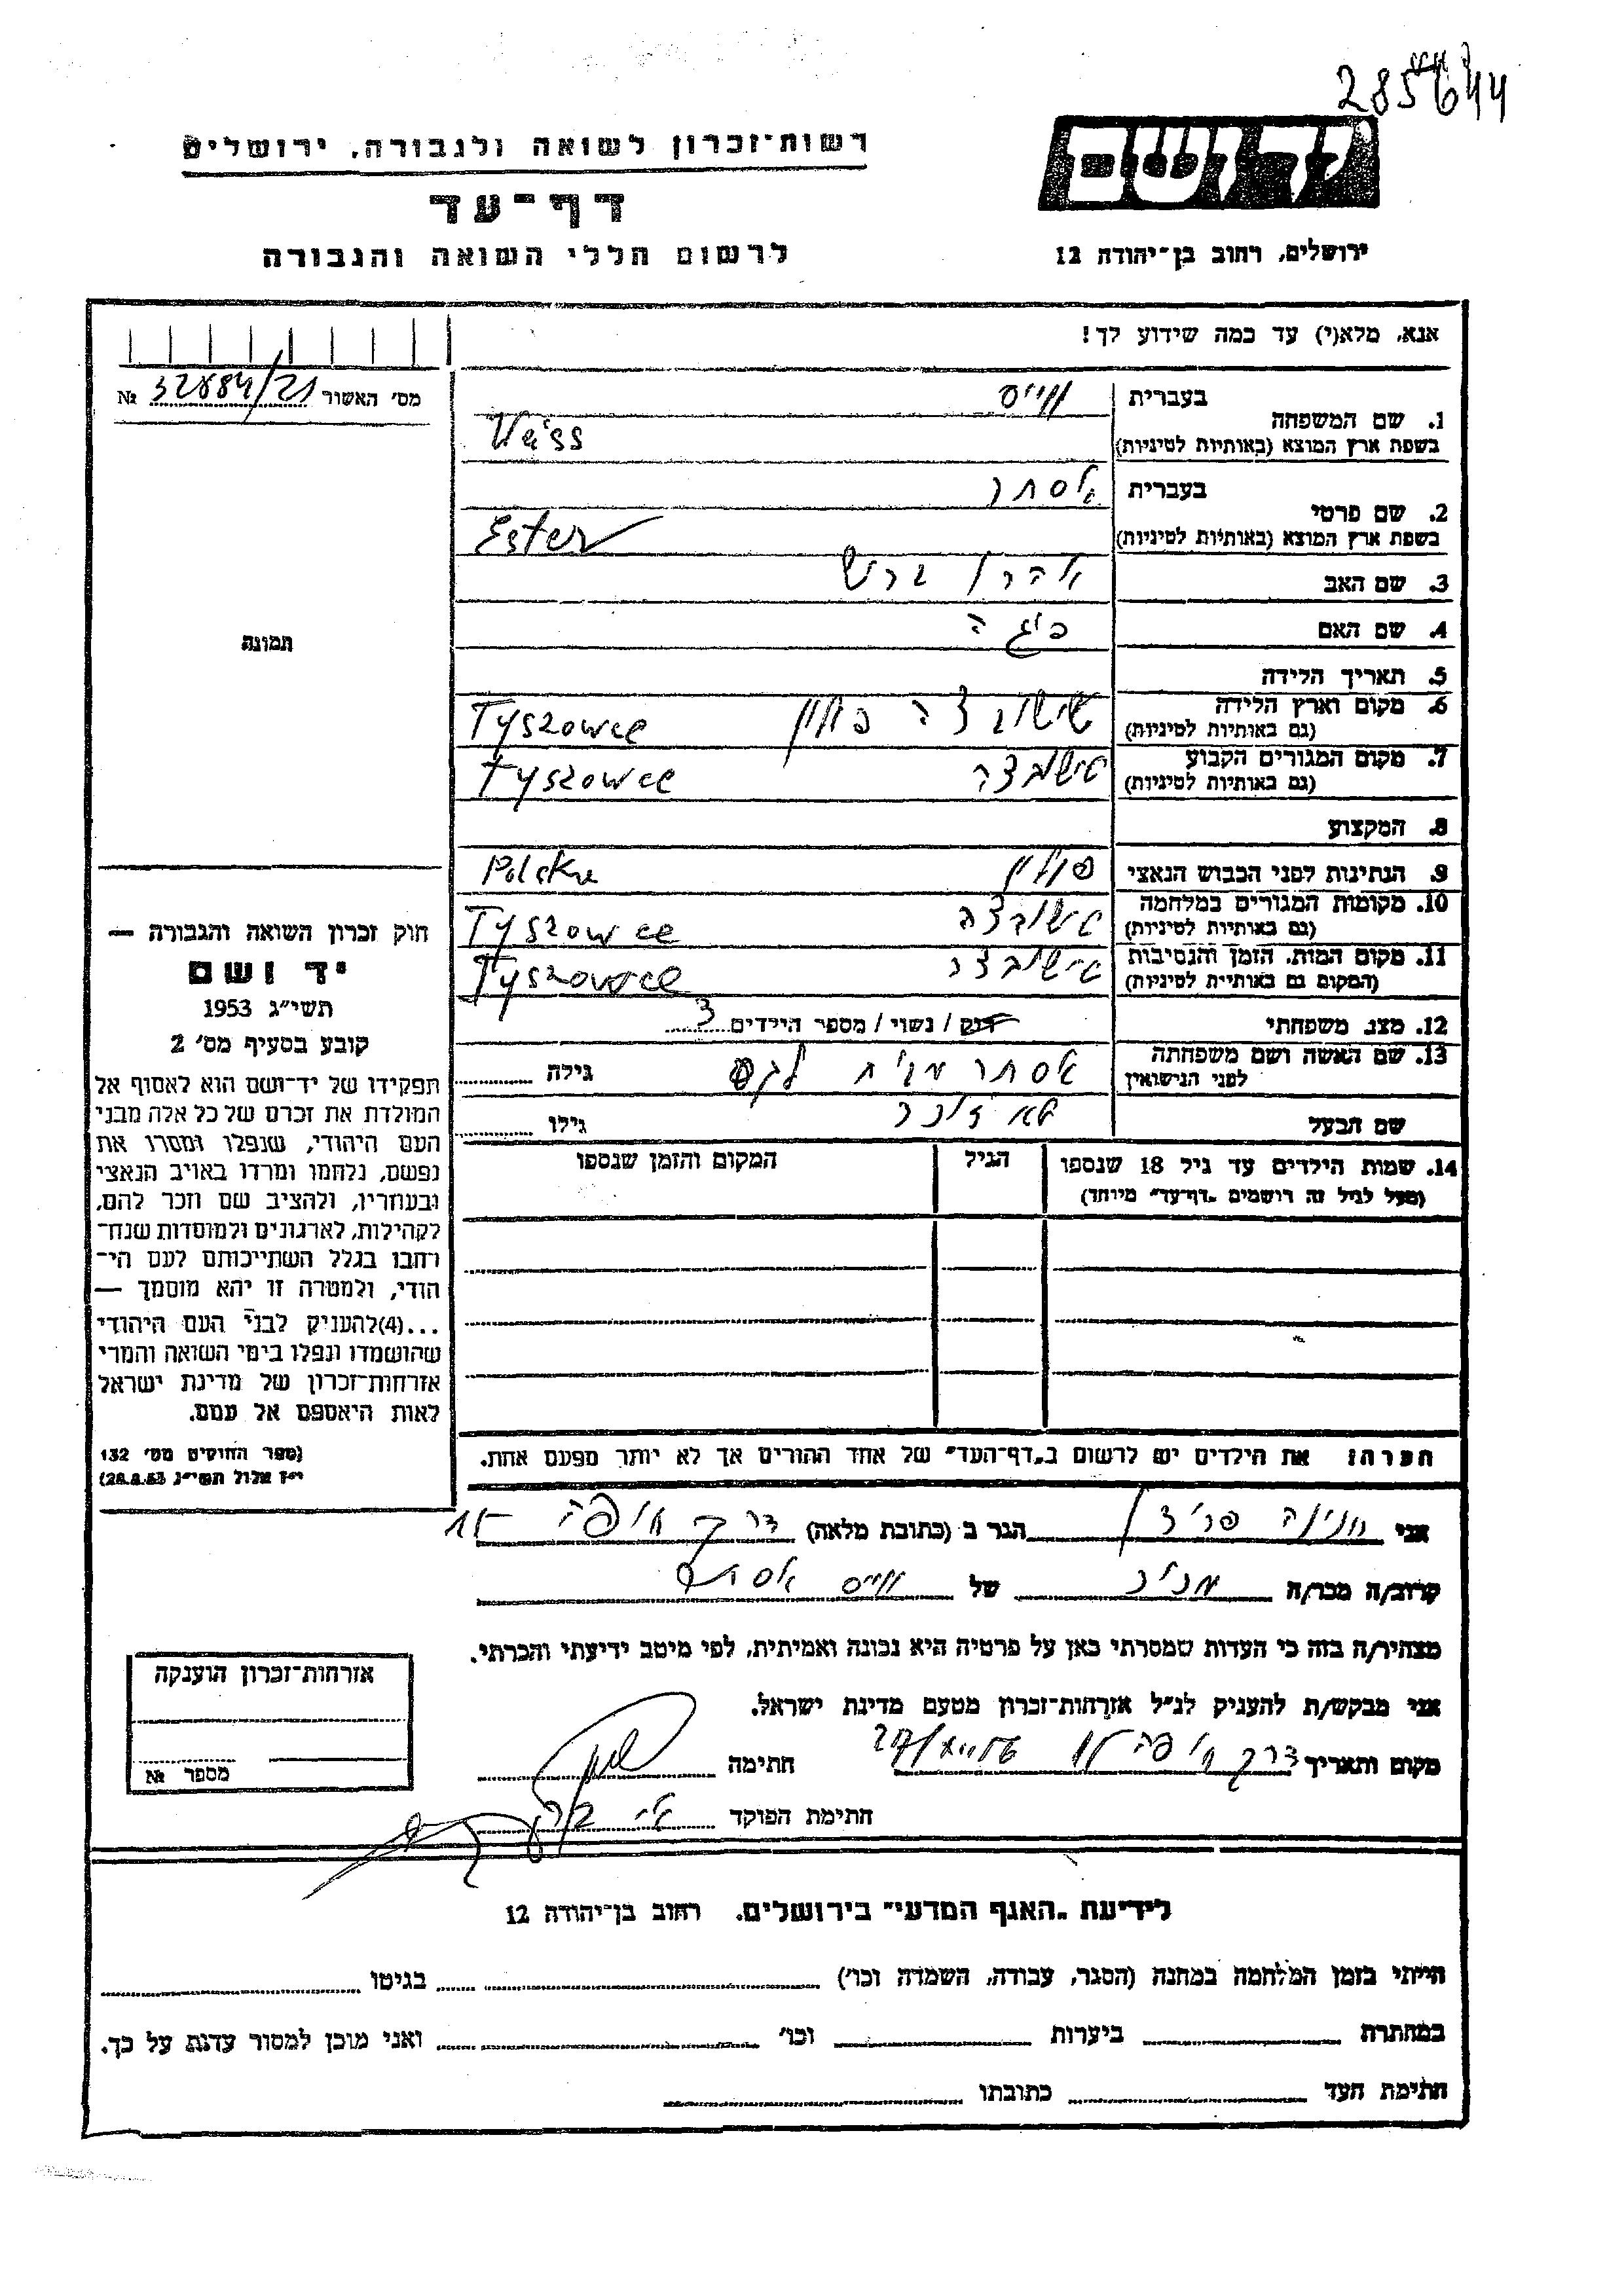 285644
רשות־זכרון לשואה ולגבורה, ירושלים
יד ושם
דף־עד
לרשום חללי השואה והגבורה
ירושלים, רחוב בן־יהודה 12
אנא, מלא(י) עד כמה שידוע לך!
מס׳ האשור 32884/21 №
1. שם המשפחה
בעברית ווייס
בשפת ארץ המוצא (באותיות לטיניות) Vaiss
2. שם פרטי
בעברית אסתר
בשפת ארץ המוצא (באותיות לטיניות) Ester
3. שם האב אהרן ברש
4. שם האם פיגה
תמונה
5. תאריך הלידה
6. מקום וארץ הלידה (גם באותיות לטיניות) טישובצה פולין Tyszowce
7. מקום המגורים הקבוע (גם באותיות לטיניות) טישובצה Tyszowce
8. המקצוע
9. הנתינות לפני הכבוש הנאצי פולין Polska
10. מקומות המגורים במלחמה (גם באותיות לטיניות) טישובצה Tyszowce
11. מקום המות, הזמן והנסיבות (המקום גם באותיות לטיניות) טישובצה Tyszowce
12. מצב משפחתי רוק / נשוי / מספר הילדים 3
13. שם האשה ושם משפחתה לפני הנישואין אסתר מבית גילה
שם הבעל גילו
14. שמות הילדים עד גיל 18 שנספו הגיל המקום והזמן שנספו
(מעל לגיל זה רושמים „דף־עד״ מיוחד)
חוק זכרון השואה והגבורה —
יד ושם
תשי״ג 1953
קובע בסעיף מס׳ 2
תפקידו של יד־ושם הוא לאסוף אל
המולדת את זכרם של כל אלה מבני
העם היהודי, שנפלו ומסרו את
נפשם, נלחמו ומרדו באויב הנאצי
ובעוזריו, ולהציב שם וזכר להם,
לקהילות, לארגונים ולמוסדות שנח־
רבו בגלל השתייכותם לעם הי־
הודי, ולמטרה זו יהא מוסמך —
...(4)להעניק לבני העם היהודי
שהושמדו ונפלו בימי השואה והמרי
אזרחות־זכרון של מדינת ישראל
לאות היאספם אל עמם.
(ספר החוקים מס׳ 132
י״ז אלול תשי״ג 28.8.53)
הערה: את הילדים יש לרשום ב„דף־העד״ של אחד ההורים אך לא יותר מפעם אחת.
אני חנינה פריד הגר ב (כתובת מלאה) דרך חיפה
קרוב/ה מכר/ה מכיר של ווייס אסתר
מצהיר/ה בזה כי העדות שמסרתי כאן על פרטיה היא נכונה ואמיתית, לפי מיטב ידיעתי והכרתי.
אני מבקש/ת להעניק לנ״ל אזרחות־זכרון מטעם מדינת ישראל.
מקום ותאריך דרך חיפה חתימה
חתימת הפוקד
אזרחות־זכרון הוענקה
מספר №
לידיעת „האגף המדעי״ בירושלים. רחוב בן־יהודה 12
הייתי בזמן המלחמה במחנה (הסגר, עבודה, השמדה וכו׳) בגיטו
במחתרת ביערות וכו׳ ואני מוכן למסור עדות על כך.
חתימת העד כתובתו